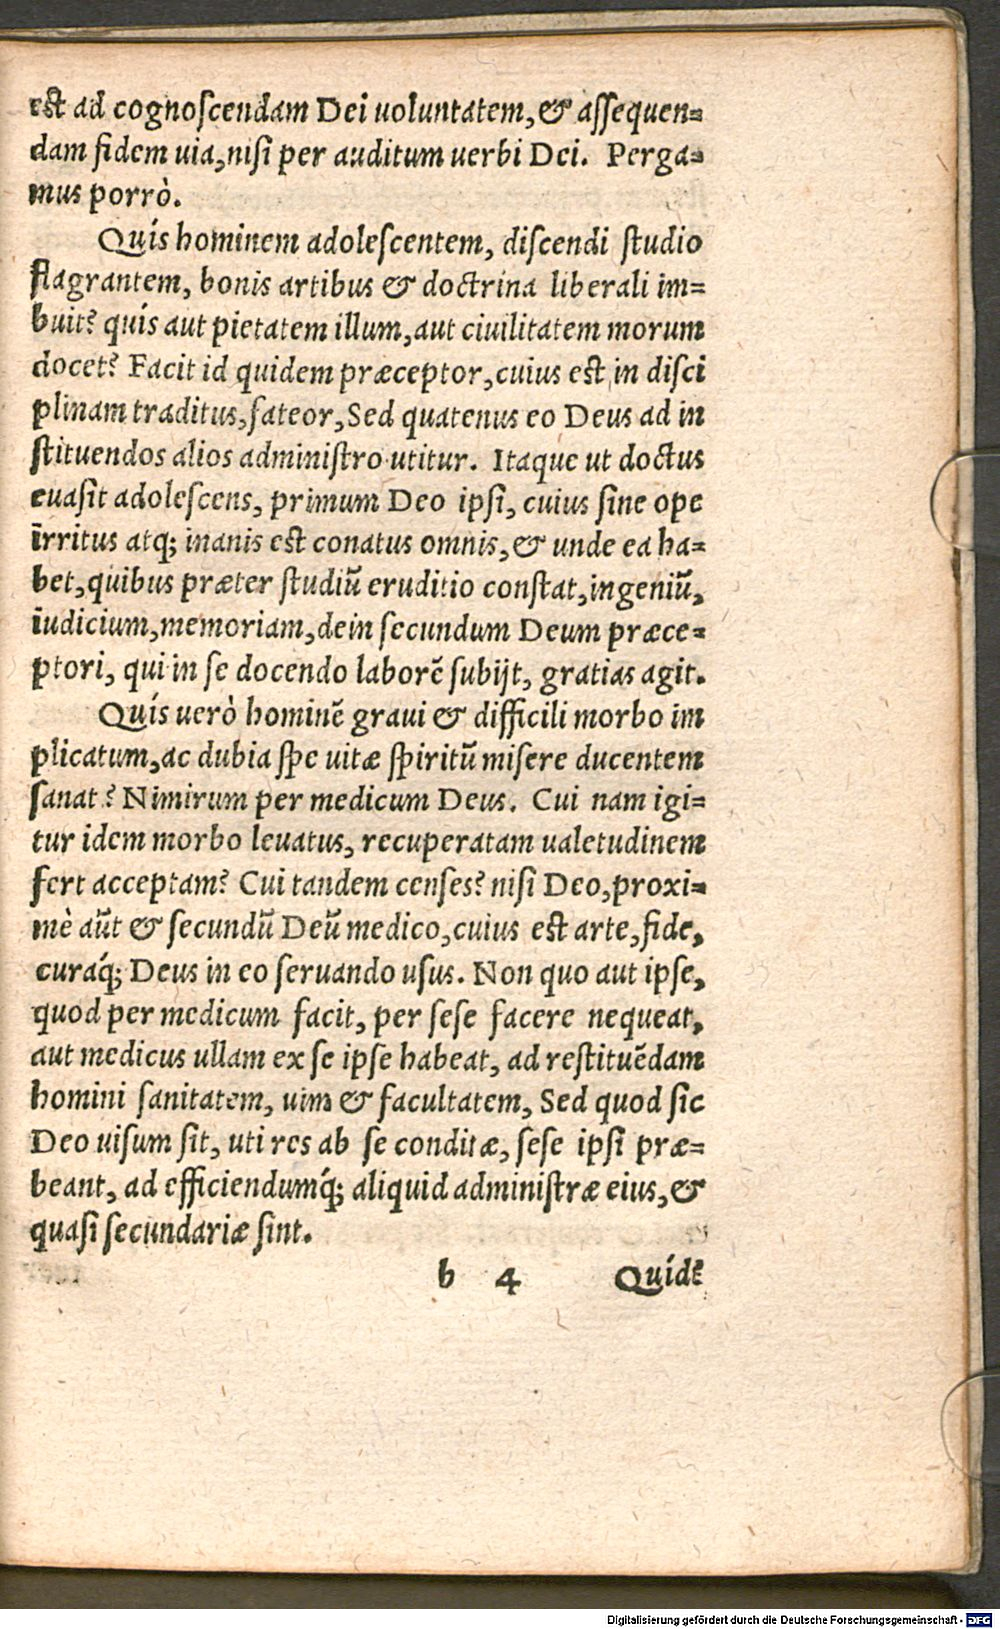 est ad cognoscendam Dei uoluntatem, & assequen=
dam fidem uia, nisi per auditum uerbi Dei. Perga=
mus porrò.
Quis hominem adolescentem, discendi studio
flagrantem, bonis artibus & doctrina liberali im=
buit? quis aut pietatem illum, aut ciuilitatem morum
docet? Facit id quidem præceptor, cuius est in disci
plinam traditus, fateor, Sed quatenus eo Deus ad in
stituendos alios administro utitur. Itaque ut doctus
euasit adolescens, primum Deo ipsi, cuius sine ope
irritus atq; inanis est conatus omnis, & unde ea ha=
bet, quibus præter studiũ eruditio constat, ingeniũ,
iudicium, memoriam, dein secundum Deum præce=
ptori, qui in se docendo laborẽ subijt, gratias agit.
Quis uerò hominẽ graui & difficili morbo im
plicatum, ac dubia spe uitæ spiritũ misere ducentem
sanat? Nimirum per medicum Deus. Cui nam igi=
tur idem morbo leuatus, recuperatam ualetudinem
fert acceptam? Cui tandem censes? nisi Deo, proxi=
mè aũt & secundũ Deũ medico, cuius est arte, fide,
curáq; Deus in eo seruando usus. Non quo aut ipse,
quod per medicum facit, per sese facere nequeat,
aut medicus ullam ex se ipse habeat, ad restituẽdam
homini sanitatem, uim & facultatem, Sed quod sic
Deo uisum sit, uti res ab se conditæ, sese ipsi præ=
beant, ad efficiendumq́; aliquid administræ eius, &
quasi secundariæ sint.
b 4 Quidẽ
Digitalisierung gefördert durch die Deutsche Forschungsgemeinschaft - DFG